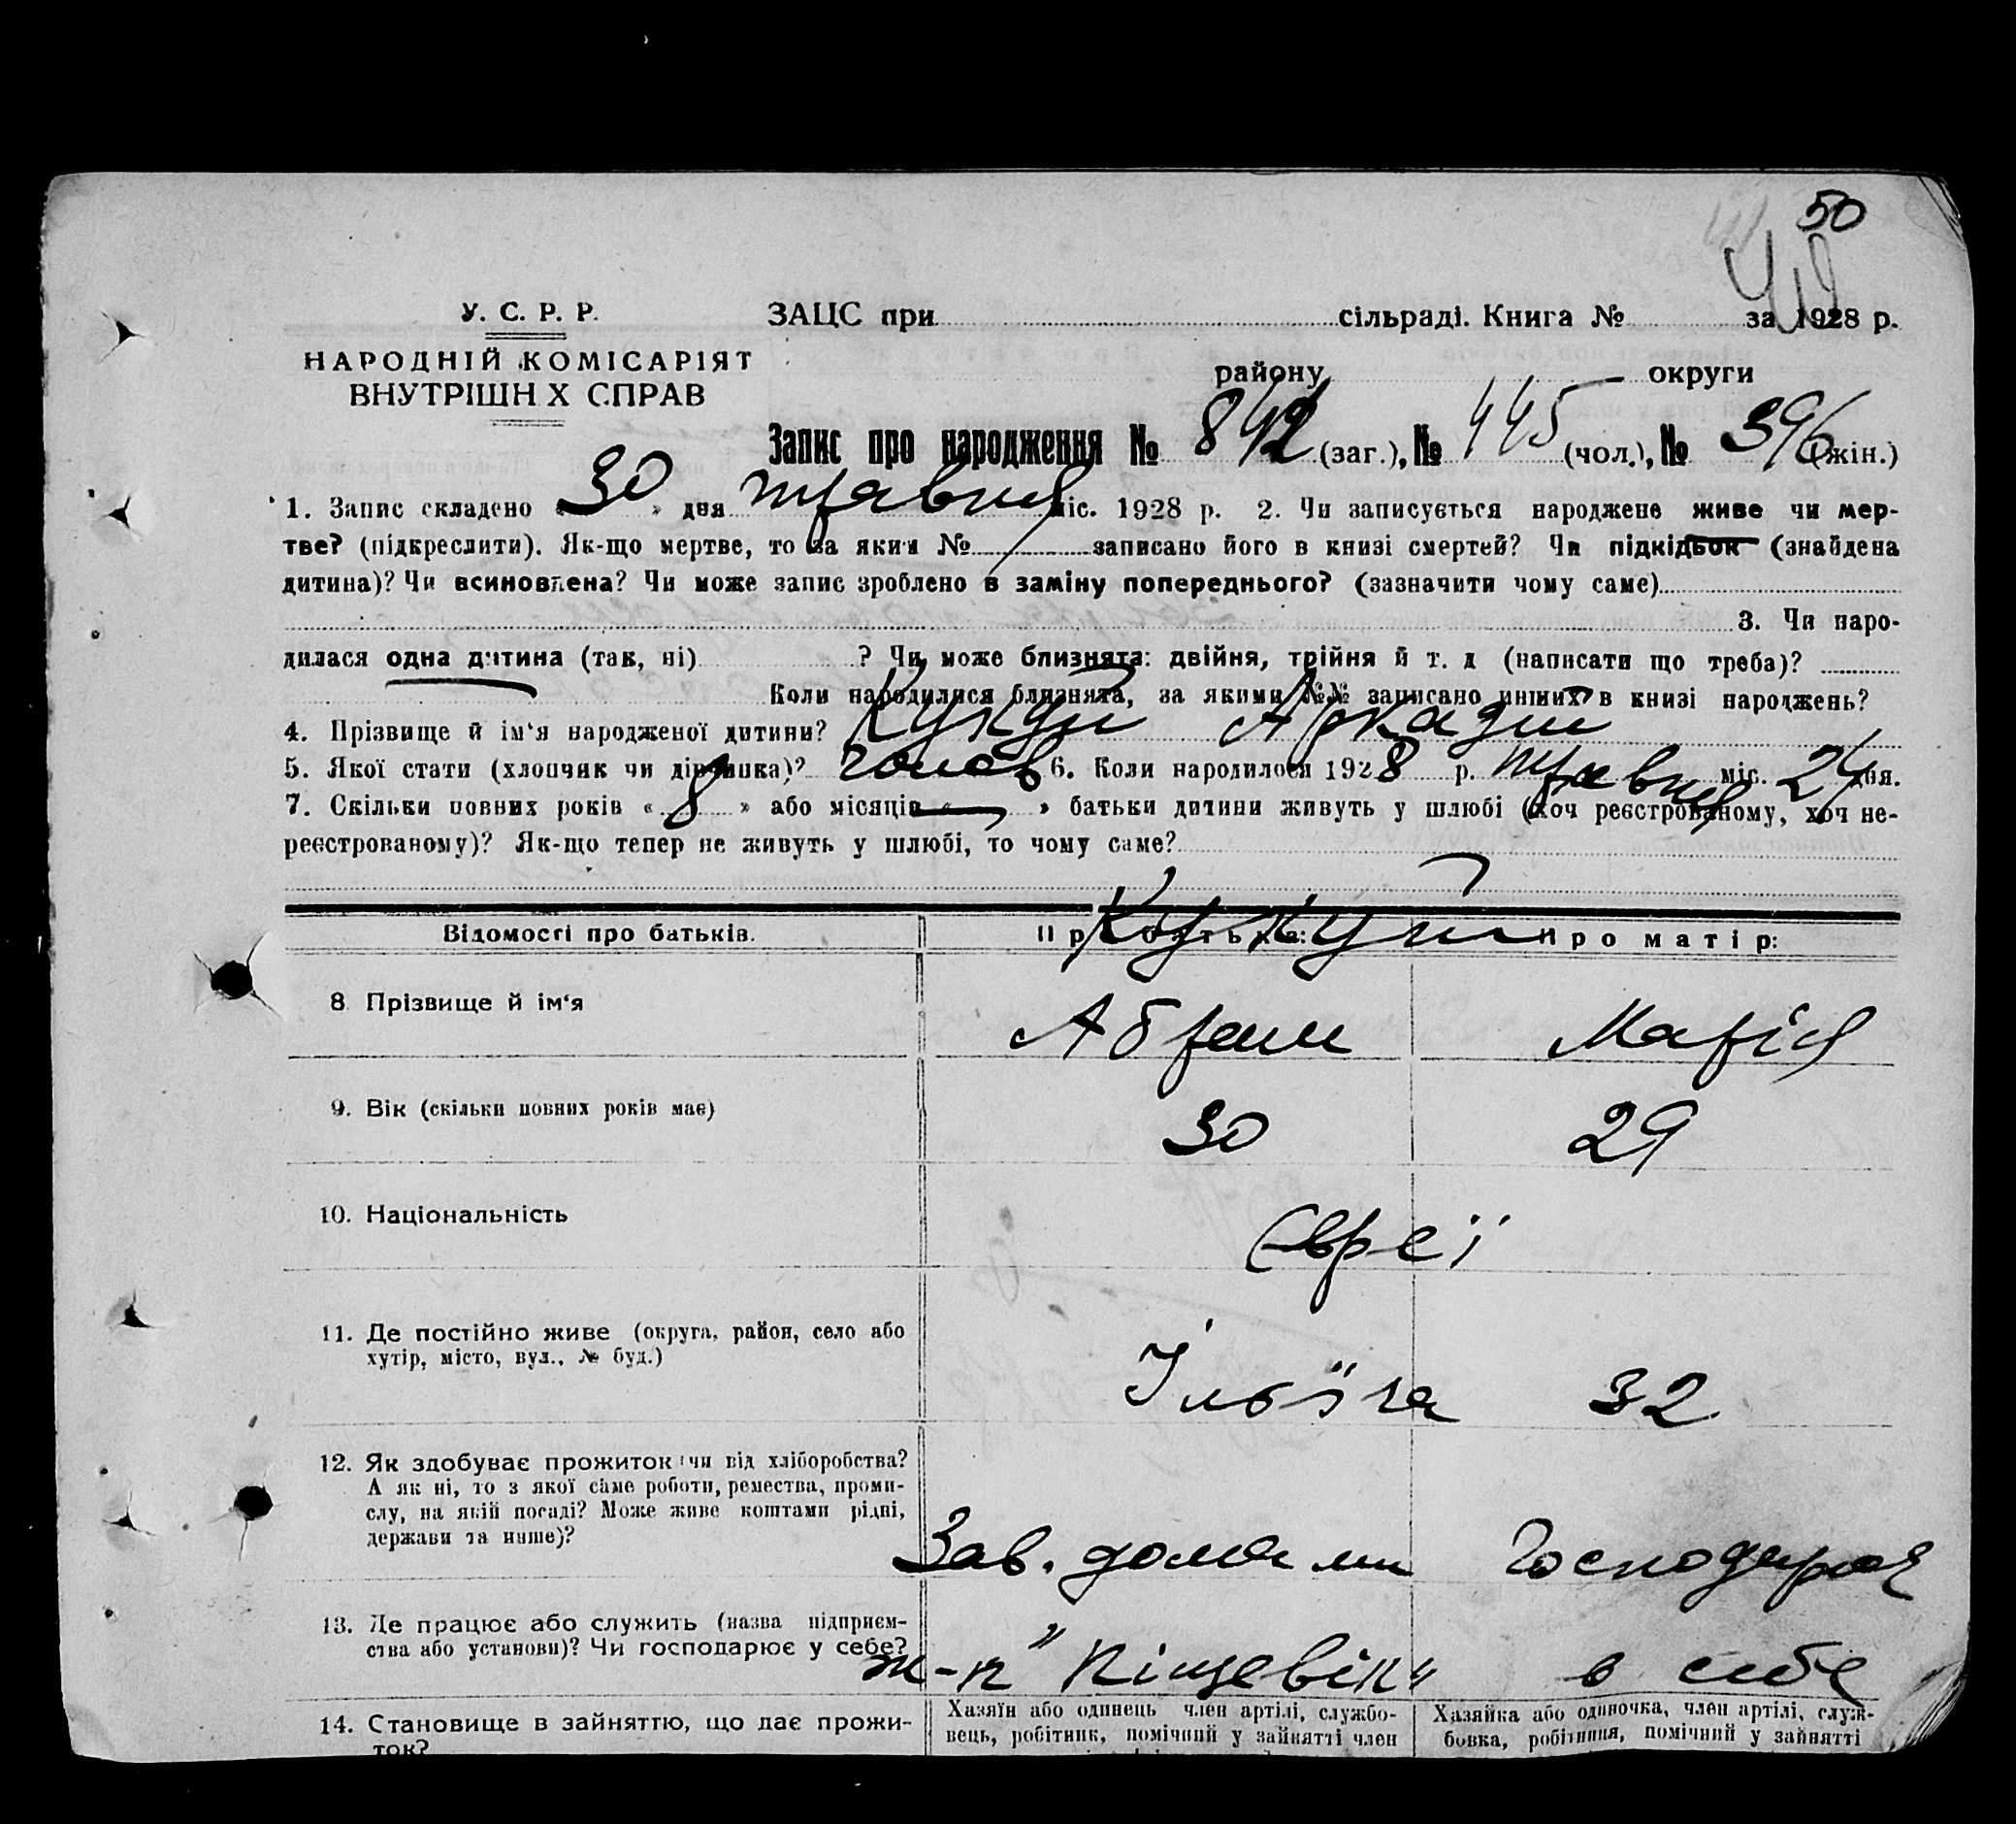 50
У. С. Р. Р.
НАРОДНІЙ КОМІСАРІЯТ
ВНУТРІШН Х СПРАВ
ЗАЦС при сільраді. Книга № за 1928 р.
району округи
Запис про народження № 842 (заг.), № 445 (чол.), № 396 (жін.)
1. Запис складено « 30 » дня травня міс. 1928 р. 2. Чи записується народжене живе чи мер-
тве? (підкреслити). Як-що мертве, то за яким № записано його в книзі смертей? Чи підкідьок (знайдена
дитина)? Чи всиновлена? Чи може запис зроблено в заміну попереднього? (зазначити чому саме)
3. Чи наро-
дилася одна дитина (так, ні) ? Чи може близнята: двійня, трійня й т. д (написати що треба)?
Коли народилися близнята, за якими №№ записано инших в книзі народжень?
4. Прізвище й ім'я народженої дитини? Кукуй Аркадій
5. Якої стати (хлопчик чи дівчинка)? чолов 6. Коли народилося 1928 р. травня міс. 24 дня.
7. Скільки повних років « 8 » або місяців « — » батьки дитини живуть у шлюбі (хоч реєстрованому, хоч не-
реєстрованому)? Як-що тепер не живуть у шлюбі, то чому саме?
Відомості про батьків. Про батька: Про матір:
Кукуй
8 Прізвище й ім'я Абрам Марія
9. Вік (скільки повних років має) 30 29
10. Національність Євреї
11. Де постійно живе (округа, район, село або
хутір, місто, вул., № буд.) Ільїча 32
12. Як здобуває прожиток чи від хліборобства?
А як ні, то з якої саме роботи, ремества, проми-
слу, на якій посаді? Може живе коштами рідні,
держави та инше)? Зав. домами Господарка
13. Де працює або служить (назва підприєм-
ства або установи)? Чи господарює у себе? ж-к "Піщевік" в себе
14. Становище в зайняттю, що дає прожи-
ток?
Хазяїн або одинець член артілі, службо-
вець, робітник, помічний у зайнятті член
Хазяйка або одиночка, член артілі, служ-
бовка, робітниця, помічний у зайнятті